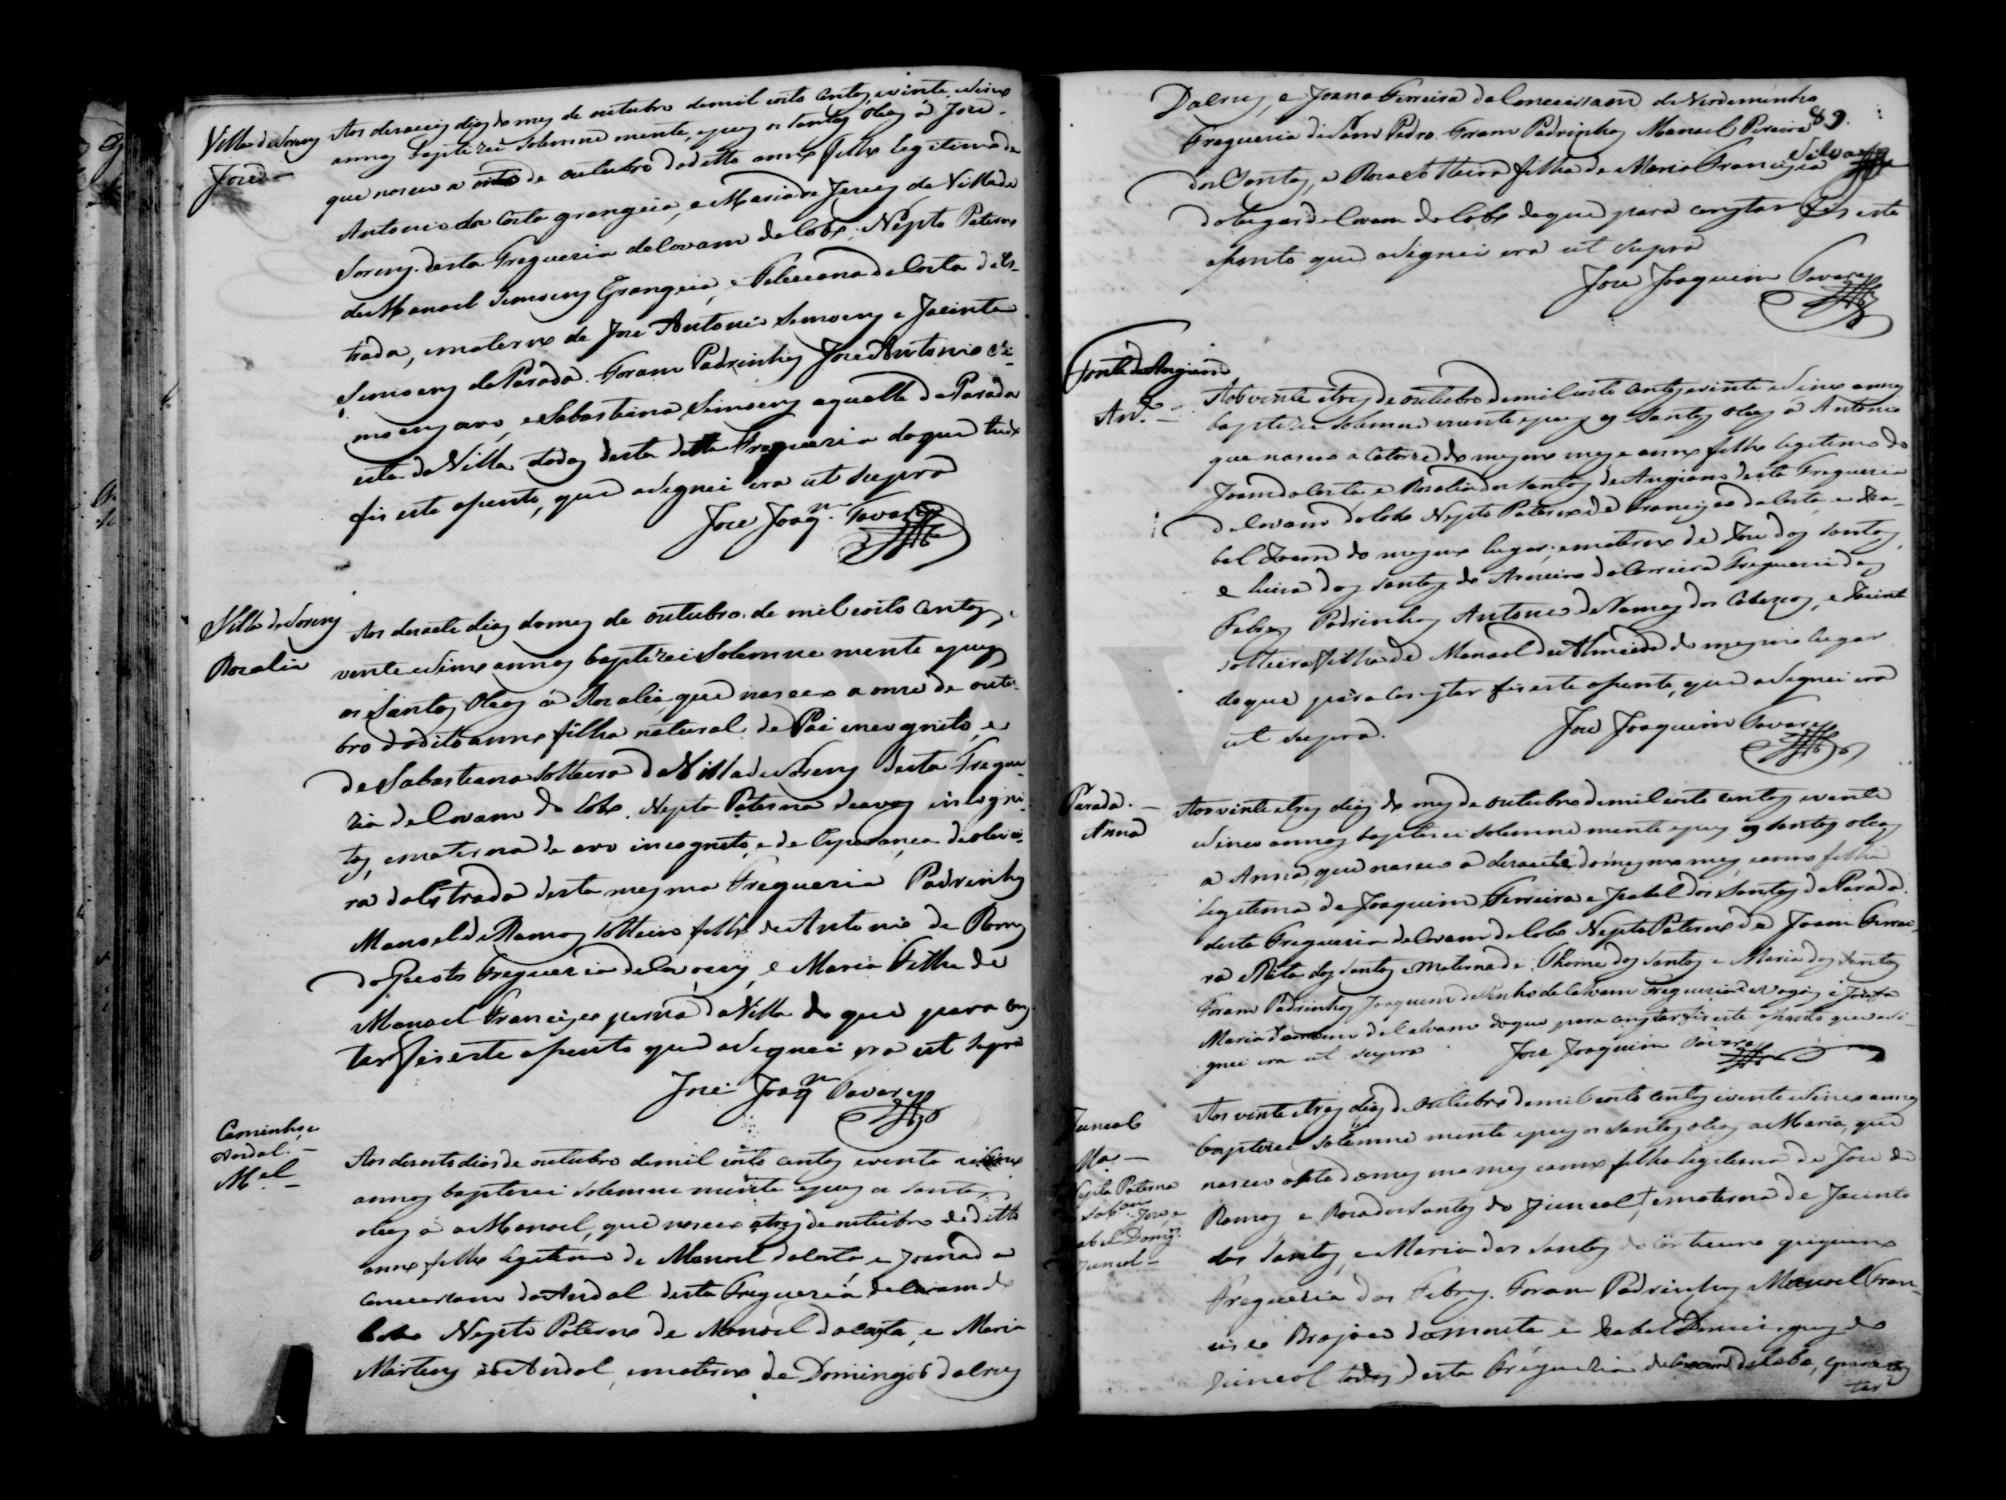 Villa de Sorens
José
Aos deraceis dias do mes de outubro de mil oito centos, evinte esinco
annos baptizei solemne mente, epuz os santos oleos á José
que nasceu a oito de outubro do ditto anno filho legitimo de
Antonio da Costa grangeia, e Maria de Jezus da Villa de
Sorens desta Freguezia deCovam do Lobo; Nepto Paterno
de Manoel Simoens Grangeia, e Feleciana da Costa da Es-
trada, ematerno de Jose Antonio Simoens e Jacinta
Simoens da Parada. Foram Padrinhos Jose Antonio Si-
moens avo, e Sabastiana Simoens aquelle da Parada
esta da Villa todos desta ditta Freguezia doque tudo
fis este acento, que asignei era ut supra
Jose Joaqm. Tavares
Villa de Sorens
Rozalia
Aos deracete dias domes de outubro de mil eoito centos
vente esinco annos baptizei solemne mente epuz
os Santos oleos á Rozalia que nasceo a onze de outu-
bro do dito anno filha natural de Pai incognito, e
de Sabastiana solteira da Villa de Sorens desta Fregue-
zia de Covam do Lobo. Nepta Paterna deavos incogni-
tos, ematerna de avo incognito, e de Esperança de olivei-
ra da Estrada desta mesma Freguezia Padrinhos
Manoel de Ramos solteiro filho de Antonio de Ramos
do Freguezia de e Maria Filha de
Manoel Francisco da Villa do que para cons-
tar fis este acento que asignei era ut supra
José Joaqm Tavares
Caminho
Andal.
Mel
Aos deroito dias de outubro demil oito centos evente esinco
annos bapterei solemne mente epuz os santos
oleos á a Manoel, que nasceo atres de outubro do ditto
anno filho legitimo de Manoel da Costa e Joana da
Conceicam do Andal desta Freguezia de Covam do
Lobo Nepto Paterno de Manoel da Costa, e Maria
Martins do Andal, ematerno de Domingos da Crus
89.
Da Crus, e Joana Ferreira da Conceissam de Verdeminho
Freguezia de Sam Pedro. Foram Padrinhos Manoel Pereira
Silva
dos Santos, e Rosa solteira filha de Maria Francisca
do lugar de Covam do Lobo doque para constar fis este
acento que asignei era ut supra
Jose Joaquim Tavares
Fonte de Angiam
Anto.
Aos vinte etres de outubro demil oito centos evinte esinco annos
baptizei solemne mente epuz os santos oleos á Antonio
que nasceo a catorze do mesmo mes e anno filho legitimo de
Joam da Costa e Rosalia dos Santos de Angiam desta Freguezia
de Covam do Lobo Nepto Paterno de Francisco da Costa, e Iza-
bel Joam do mesmo lugar; ematerno de Jose dos santos,
e Luiza dos santos do Arneiro da Carreira Freguezia das
Febres Padrinhos Antonio de Ramos dos Cabeços, e Jacinta
solteira filha de Manoel de Almeida do mesmo lugar
doque para constar fis este acento, que asignei era
ut supra.
Jose Joaquim Tavares
Parada.
Anna
Aos vinte etres dias do mes de outubro demil oito centos evente
esinco annos baptezei solemne mente epuz os santos oleos
a Anna, que nasceo a deracete do mesmo mes, eanno filha
legitima de Joaquim Ferreira e Izabel dos Santos da Parada
desta Freguezia de Covam do Lobo Nepta Paterna de Joam Ferrei-
ra e Rita dos santos ematerna de Thome dos santos e Maria dos santos
Foram Padrinhos Joaquim de Pinho de Calvam Freguezia de Vagos, e Josefa
Maria de Calvam doque para constar fis este acento que asi-
gnei era ut supra
Jose Joaquim Tavares
Juncal
Ma
Nepta Paterna
José e
Izabel Doming.
Juncal
Aos vinte etres dias de outubro demil eoito centos evente esinco annos
baptezei solemne mente epuz os santos oleos a Maria, que
nasceo oito do mesmo mes eanno filha legitima de Jose de
Ramos e Rosa dos Santos do Juncal, ematerna de Jacinto
dos Santos, e Maria dos Santos do
Freguezia das Febres. Foram Padrinhos Manoel Fran-
cisco e Izabel Domingues do
Juncal todos desta Freguezia de Covam do Lobo, epara cons-
tar